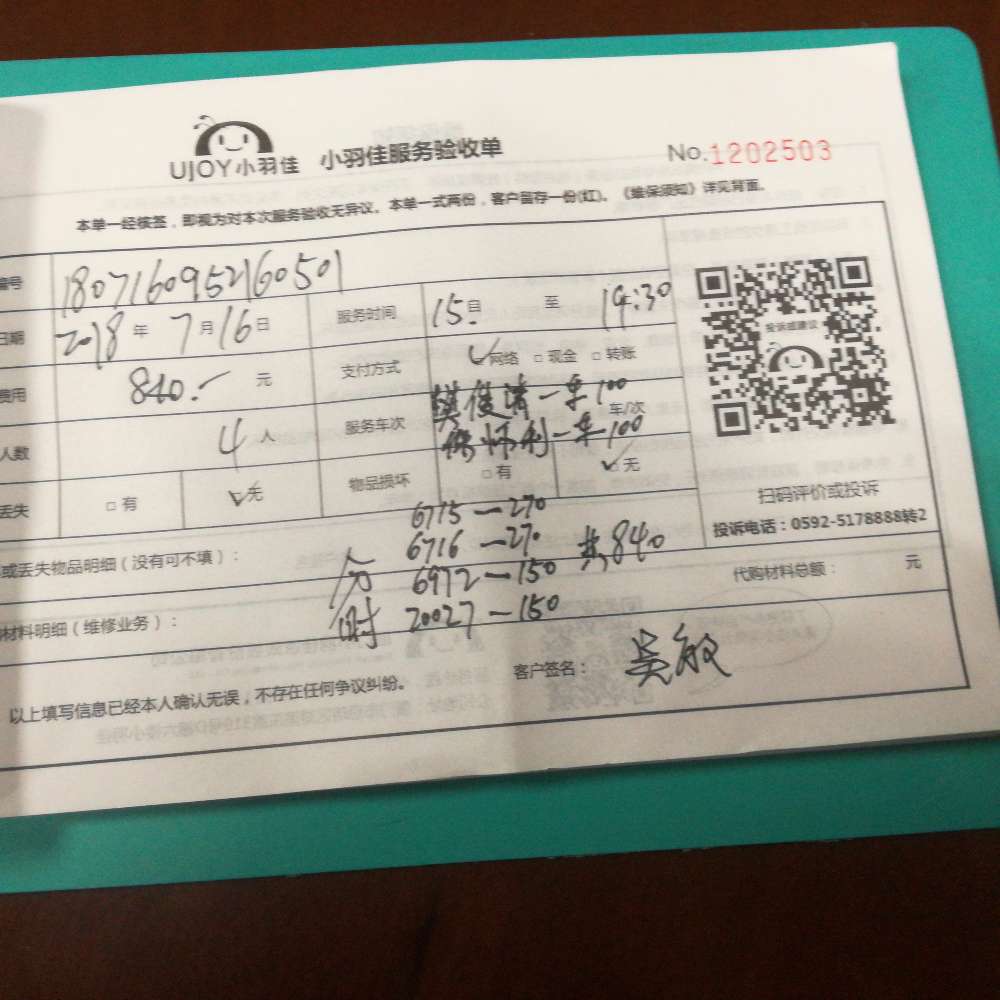 UJOY小羽佳 小羽佳服务验收单 No.1202503
本单一经核签，即视为对本次服务验收无异议。本单一式两份，客户留存一份(红)。《维保须知》详见背面。
编号 1807160952160501
日期 2018年 7月16日 服务时间 15 至 19:30
费用 840.- 元 支付方式 ✓网络 □现金 □转账
人数 4人 服务车次 一车100 车/次
一车100
丢失 □有 ✓无 物品损坏 □有 ✓无
投诉或建议
扫码评价或投诉
投诉电话：0592-5178888转2
或丢失物品明细（没有可不填）：
6715—270
6716—270 共840
分 6972—150
时 20027—150
材料明细（维修业务）： 代购材料总额： 元
以上填写信息已经本人确认无误，不存在任何争议纠纷。 客户签名： 吴敏